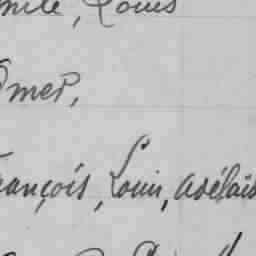 Louis
Omer,
François, Louis, Adélais